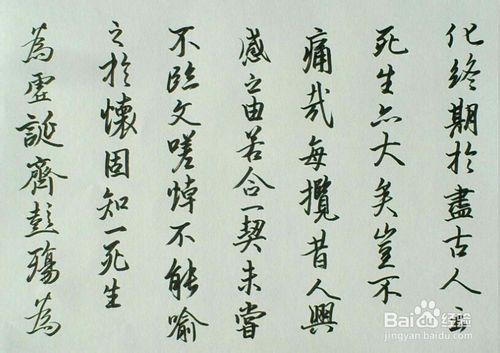 化終期於盡古人云
死生亦大矣豈不
痛哉每攬昔人興
感之由若合一契未嘗
不臨文嗟悼不能喻
之於懷固知一死生
為虛誕齊彭殤為
Baidu经验
jingyan.baidu.com